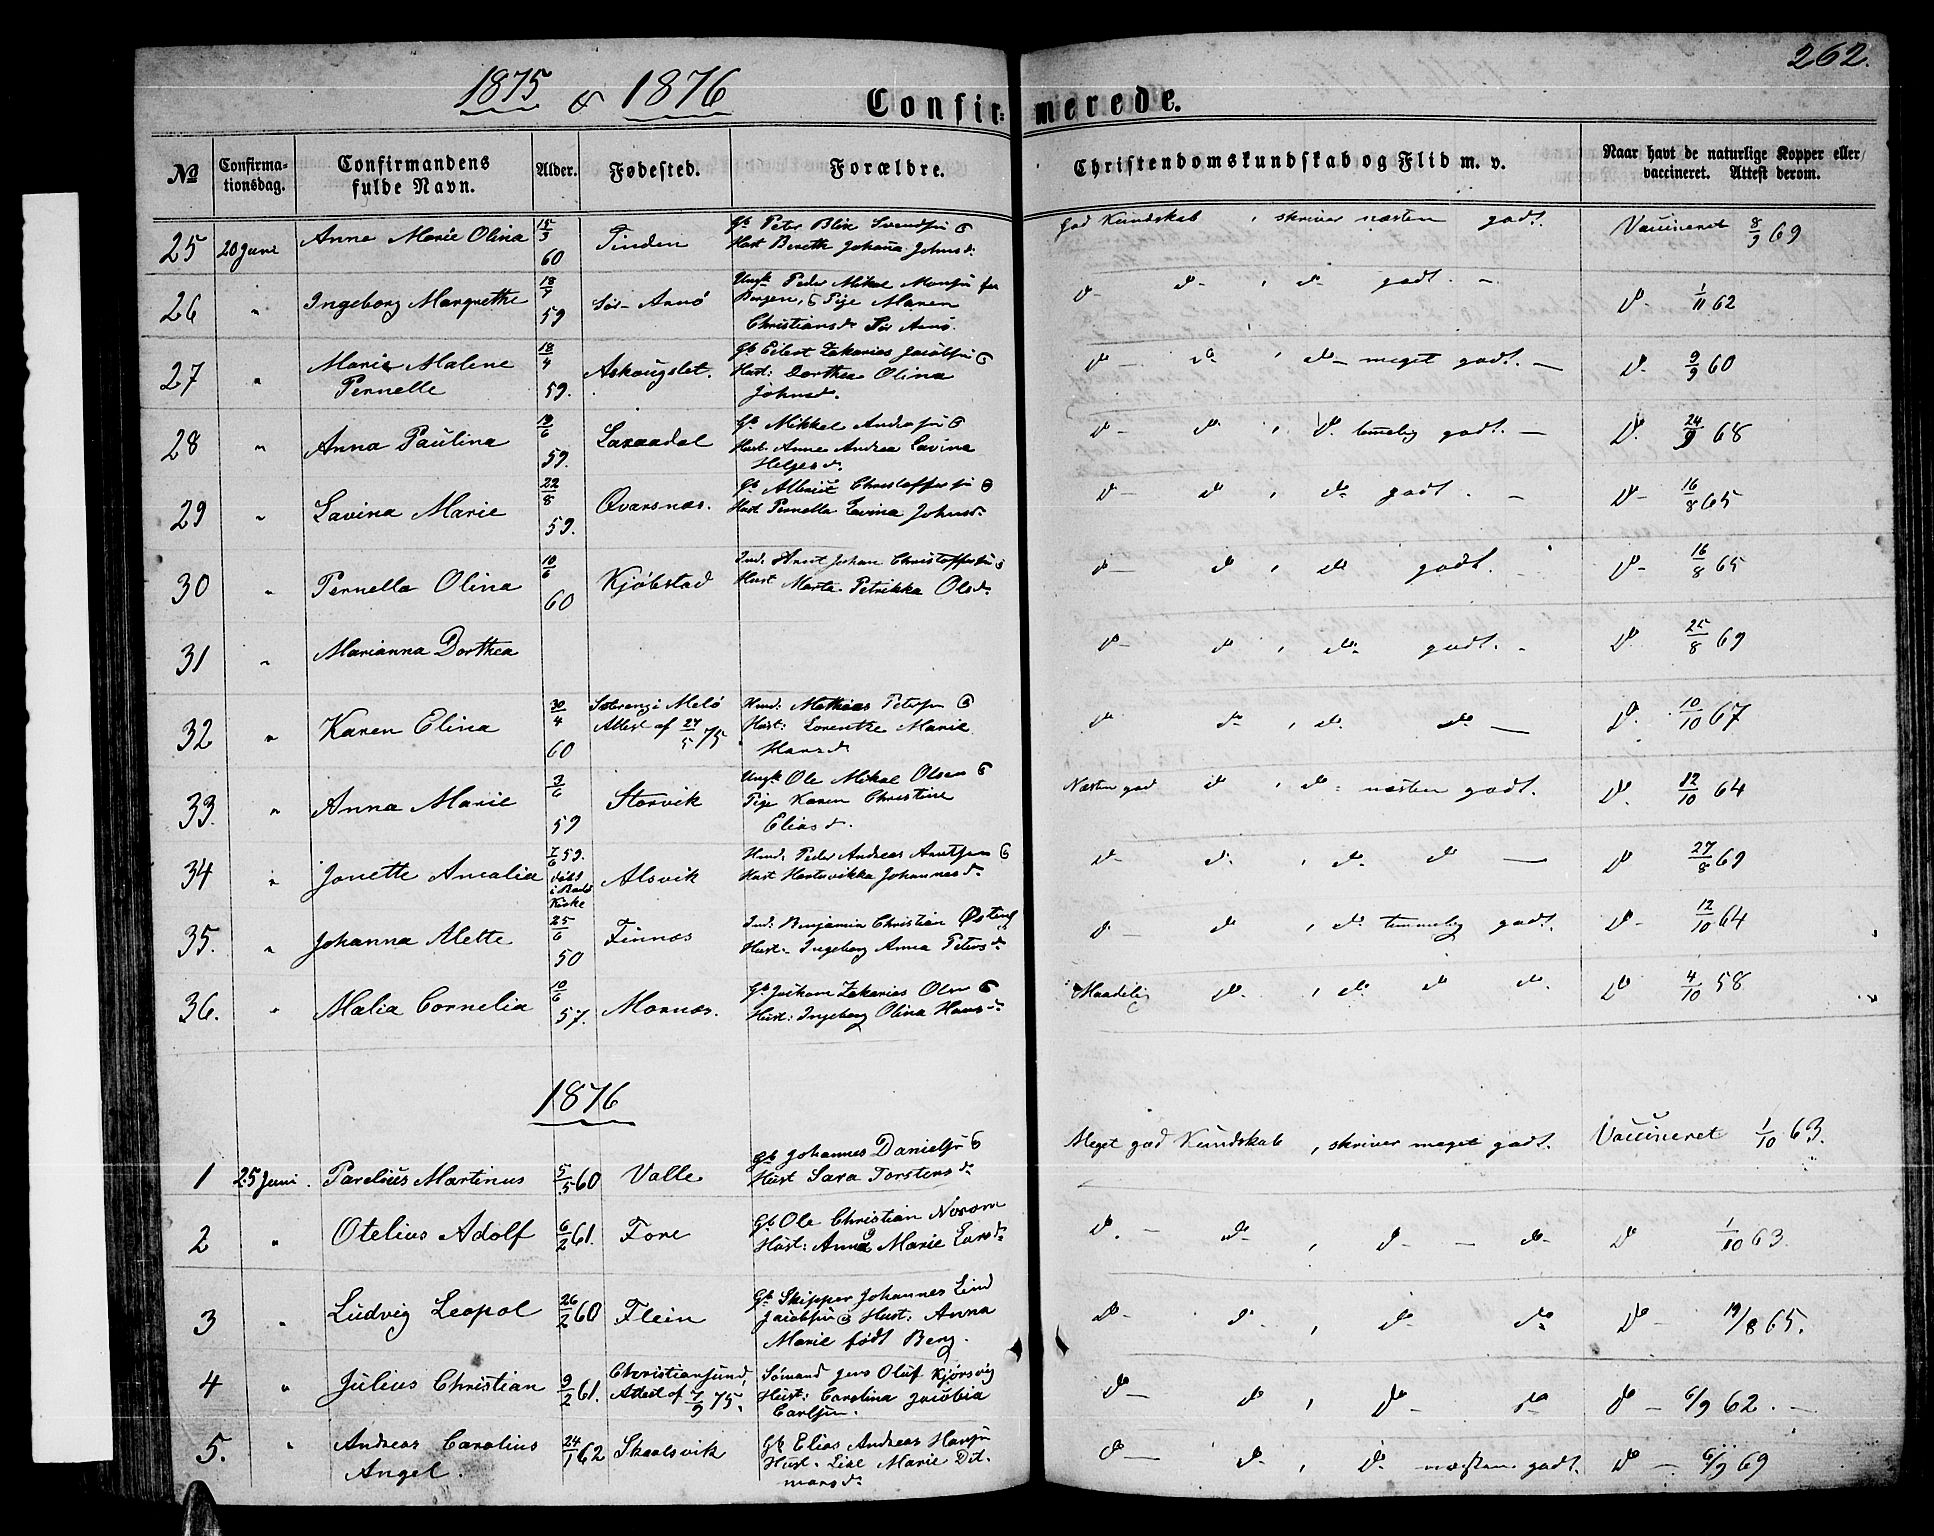 262.
1875 & 1876
Confir- merede.
No
Confirma-
tionsdag.
Confirmandens
fulde Navn.
Alder.
Fødested.
Forældre.
Christendomskundskab og Flid m. v.
Naar havt de naturlige Kopper eller
vaccineret. Attest derom.
25 20 Juni Anne Marie Olina 15/3 60 Tinden
Gb Peter Blix Svendsøn &
Hust Bereth Johanna Johnsd.
god Kundskab, skriver næsten godt. Vaccineret 8/9 69
26 " Ingeborg Margrethe 18/7 59 Sør-Arnø
Ungk. Peder Mikal Monsøn fra
Bergen, & Pige Maren
Christiansd. Sør Arnø.
do do, do godt. do 1/11 62
27 " Marie Malene
Pernelle 18/4 59. Askougslet.
Gb Eilert Zakarias Jacobsøn &
Hust: Dorthea Olina
Johnsd.
do do, do meget godt. do 9/9 60
28 " Anna Paulina 19/6 59. Laxaadal
Gb Mikkel Andersøn &
Hust. Anne Andrea Lavina
Helgesd.
do do, do temmelig godt. do 24/9 68
29 " Lavina Marie 22/8 59. Qvarsnæs.
Gb Albrict Christoffersøn &
Hust Pernella Lavina Johnsd.
do do, do godt. do 16/8 65
30 " Pernella Olina 10/6 60 Kjøbstad
Ind: Arnt Johan Christoffersøn &
Hust Marta Petrikka Olsd.
do do, do godt. do 16/8 65
31 " Marianna Dorthea
do do, do godt. do 25/8 69
32 " Karen Elina 30/4 60
Attest af 27/5 75.
Hmd: Mathias Petersøn &
Hust: Lorentze Marie
Hansd.
do do, do do do 10/10 67
33. " Anna Marie 3/6 59 Storvik
Ungk. Ole Mikal Olsen &
Pige Karen Christine
Eliasd.
Næsten god do, do næsten godt. do 12/10 64
34 " Jonette Amalia 7/6 59.
døbt
i Bodø
Kirke Alsvik
Hmd: Peder Andreas Arntsen &
Hust Hartvikka Johannesd.
do do, do do do 27/8 69
35. " Johanna Mette 25/6 50 Finnæs
Ind: Benjamin Christian
Hust. Ingeborg Anna Petersd.
do do, do temmelig godt. do 12/10 64
36. " Malia Cornelia 10/6 57. Mornæs.
Gb Joakom Zakarias Olsen &
Hust: Ingeborg Olina Hansd.
Maadelig do, do do do do 4/10 58
1876
1 25 Juni. Parelius Martinus 5/5 60 Valle
Gb Johannes Danielsøn &
Hust Sara Torstensd.
Meget god Kundskab, skriver meget godt. Vaccineret 1/10 63.
2 " Otelius Adolf 6/2 61. Fore
Gb Ole Christian Norum
Hust: Anna Marie Larsd.
do do, do do do 1/10 63.
3 " Ludvig Leopol 26/2 60 Flein
Gb Skipper Johannes Lind
Jacobsøn & Hust: Anna
Marie født Berg.
do do, do do do 19/8 65.
4 " Julius Christian 9/2 61.
Christiansund,
Attest af 7/9 75.
Sømand Jens Oluf Kjørsvig
Hust: Carolina Jacobia
Carlsen.
do do, do do do 6/9 62.
5. " Andreas Carolius
Angel. 24/1 62 Skaalsvik
Gb Elias Andreas Hansøn
Hust. Lise Marie Dit-
marsd.
do do, do næsten godt. do 6/9 69